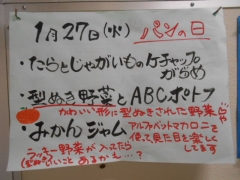 1月27日(火) パンの日
・たらとじゃがいものケチャップ
がらめ
・型ぬき野菜とABCポトフ
かわいい形に型ぬきされた野菜や
・みかんジャム
アルファベットマカロニを
使って見た目を楽しく
してます
ラッキー野菜が入ってたら
いいこと あるかえ…?